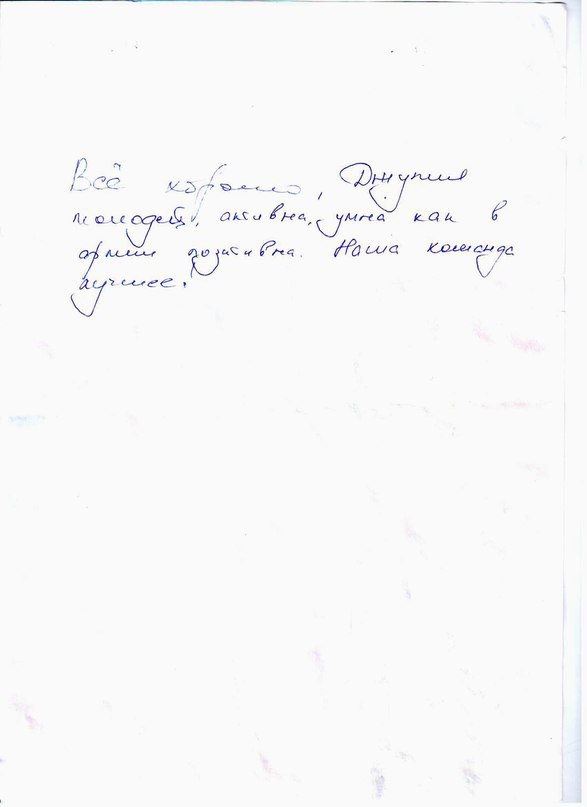 Всё хорошо, Джулия
молодец, активна, умна как в
армии позитивна. Наша команда
лучшее!